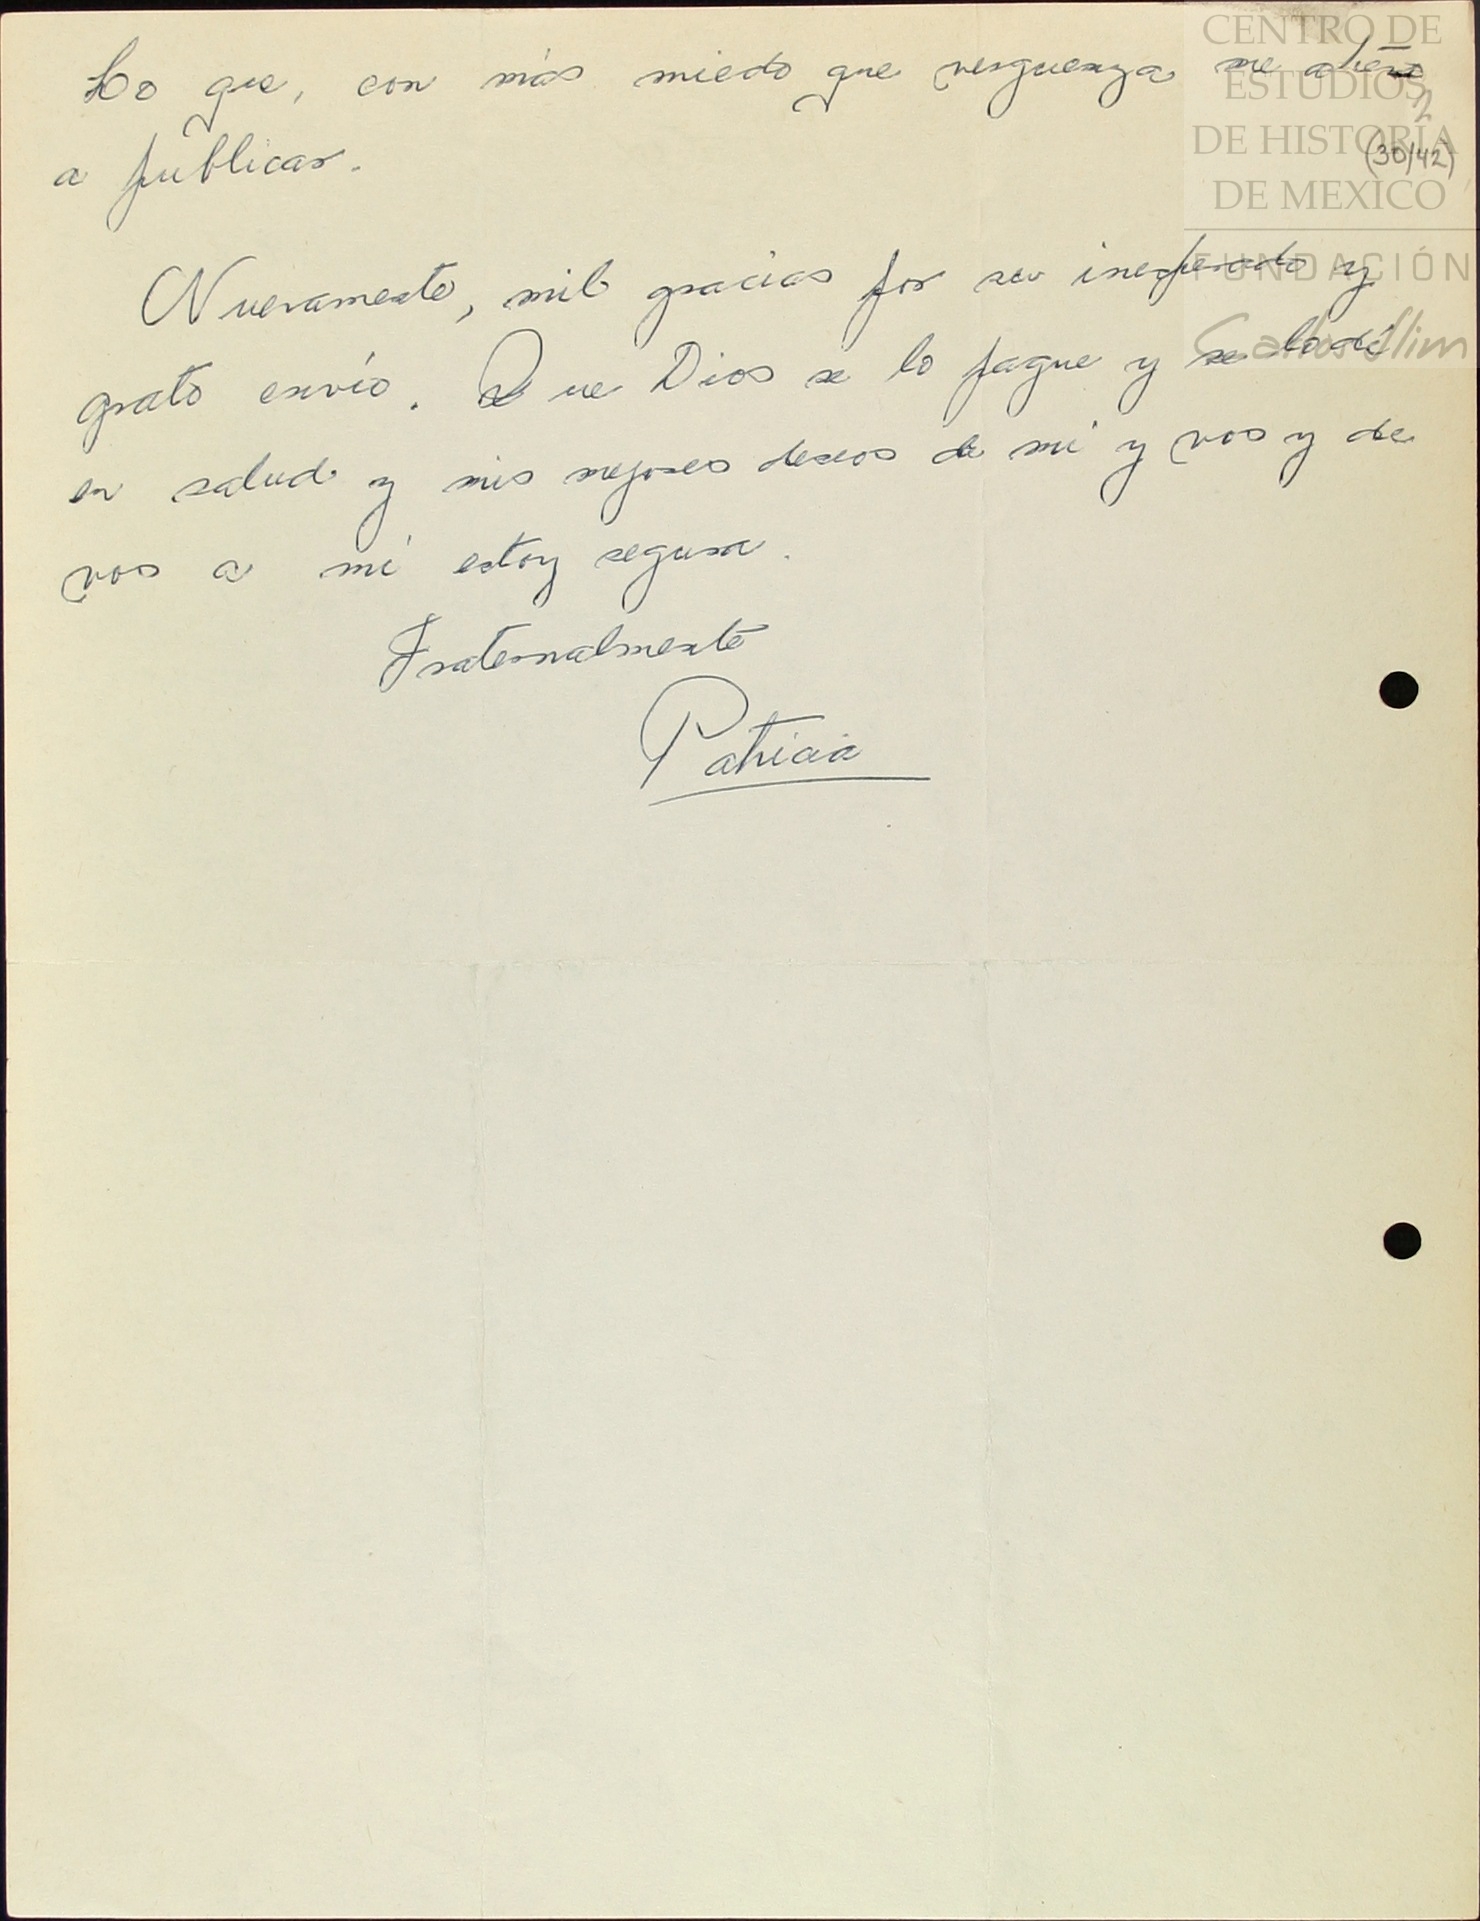 Lo que, con más miedo que verguenza me
a publicar.
Nuevamente, mil gracias por su inesperado y
grato envío. Que Dios se lo pague y se lo dé
en salud y mis mejores deseos de mí y vos y de
vos a mí estoy segura.
Fraternalmente
Patricia
2
(30/42)
CENTRO DE
ESTUDIOS
DE HISTORIA
DE MEXICO
FUNDACIÓN
Carlos Slim